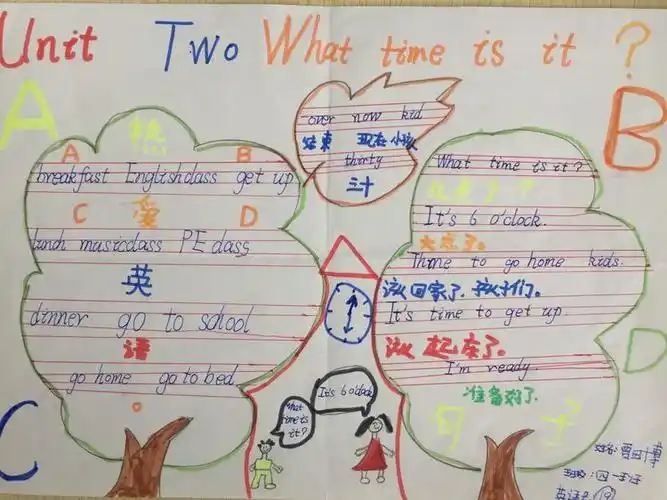 Unit Two What time is it ?
A
B
C
D
over now kid
结束 现在 小孩
thirty
三十
热
A B
breakfast English class get up
C 爱 D
lunch music class PE class
英
dinner go to school
语
go home go to bed
。
What time is it?
几点了?
It's 6 o'clock.
六点了。
Thime to go home kids.
该回家了,孩子们。
It's time to get up.
该起床了。
I'm ready.
准备好了.
What time is it?
It's 6 o'clock
姓名:
班级:四一班
19